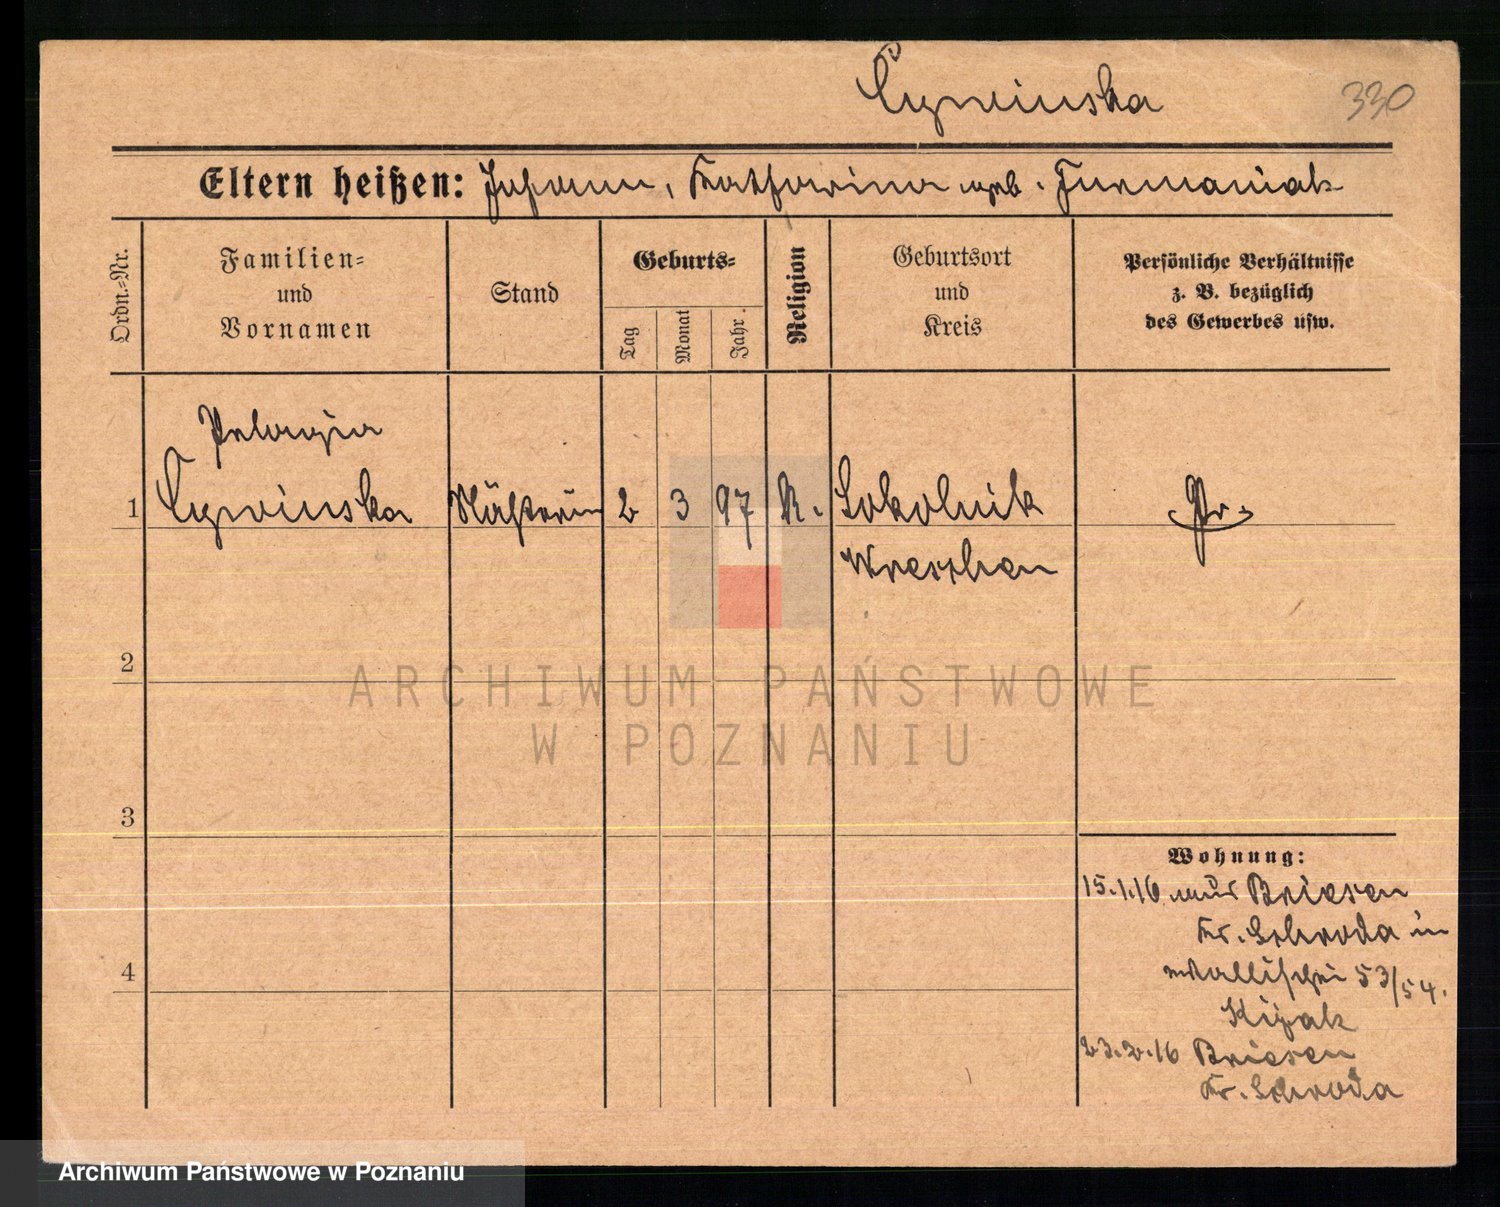 Cywinska
330
Eltern heißen: Johann, Katharina geb. Furmaniak
Ordn.=Nr.
Familien=
und
Vornamen
Stand
Geburts=
Tag
Monat
Jahr.
Religion
Geburtsort
und
Kreis
Persönliche Verhältnisse
z. B. bezüglich
des Gewerbes usw.
Pelagia
1 Cywinska Näherin 2 3 97 K. Sokolnik Pr.
Wreschen
2
3
4
Wohnung:
15.1.16 aus Briesen
Kr. Schroda in
Wallischei 53/54.
23.2.16 Briesen
Kr. Schroda
ARCHIWUM PAŃSTWOWE
W POZNANIU
Archiwum Państwowe w Poznaniu